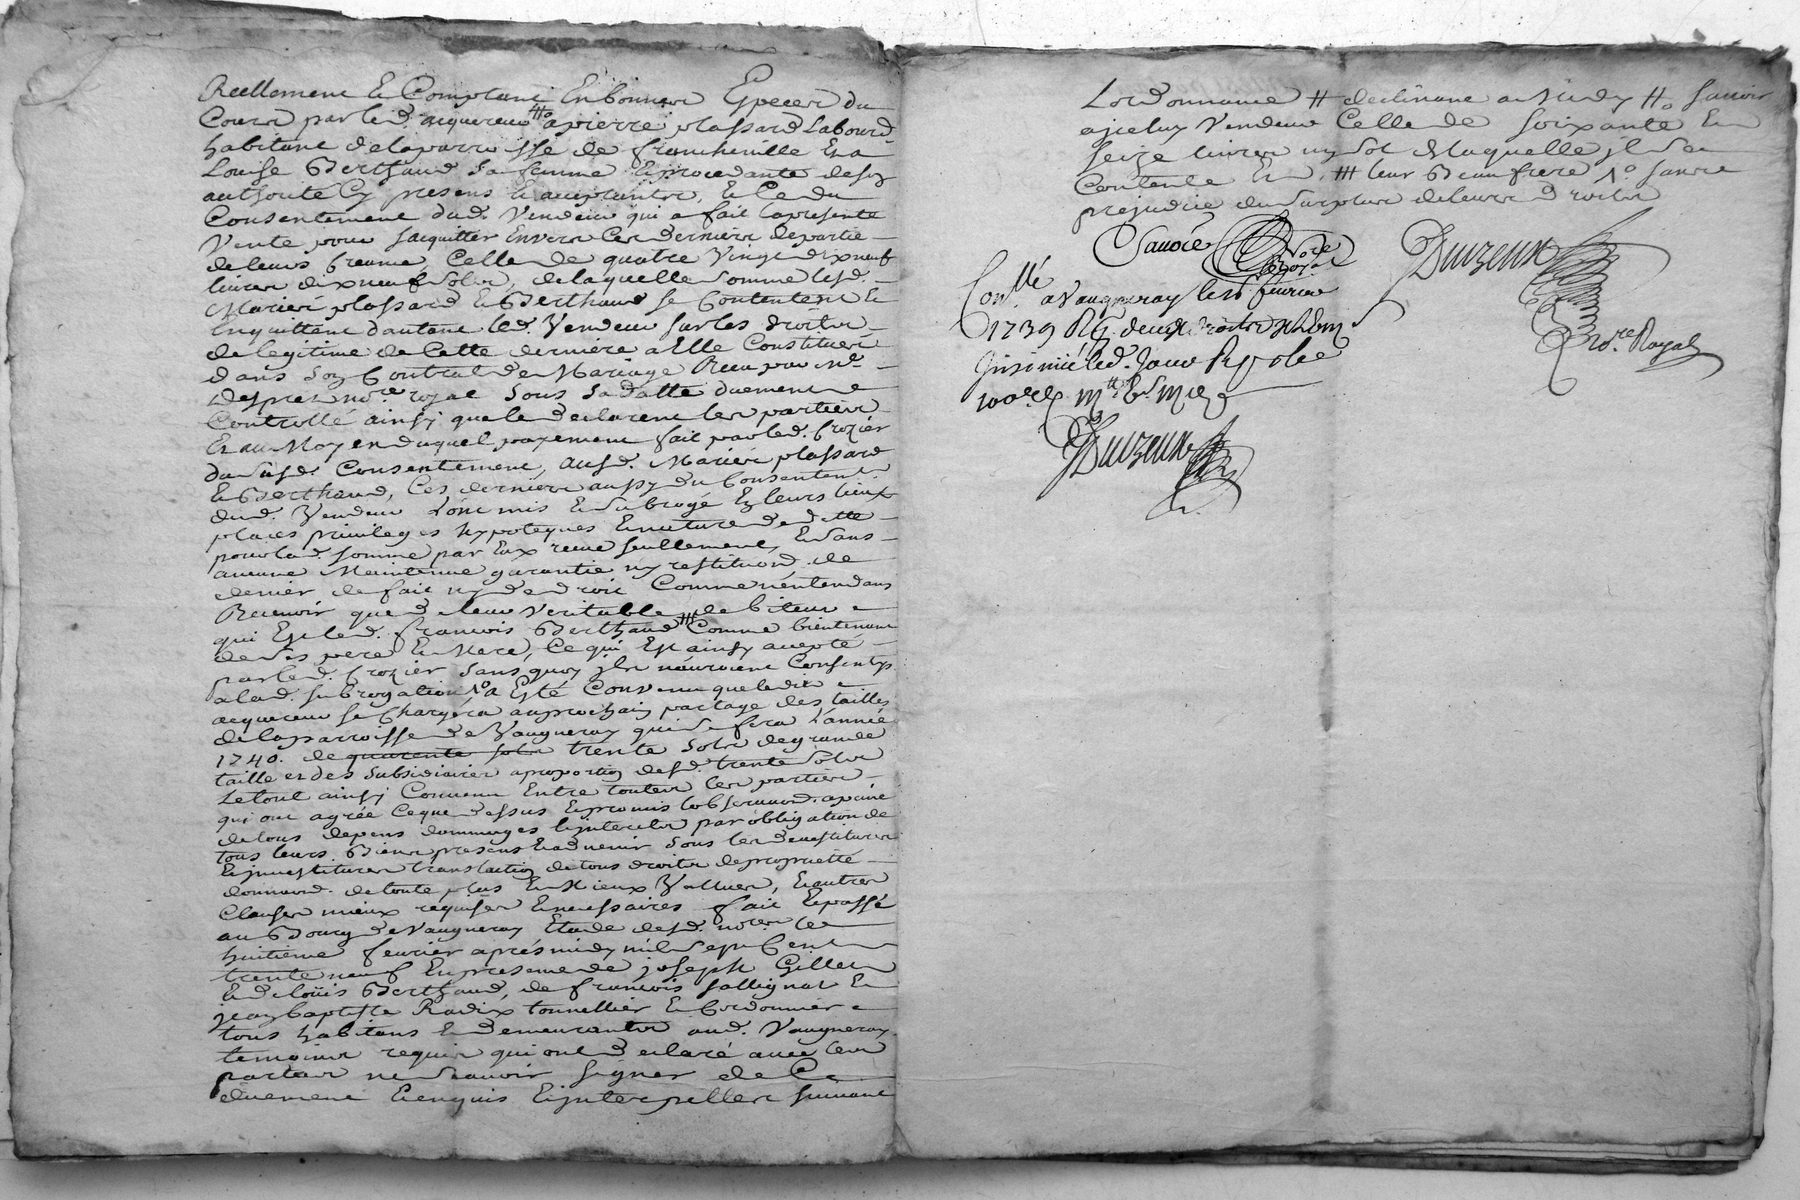 Reellement et Comptant En bonnes Especes du
Cours par led. acquereur #o a pierre plassard Labourd.
habitant de la parroisse de francheville Et a
Louise Berthaud sa femme Et procedante de son
authorité Cy presens Et acceptantes, Et Ce du
Consentement dud. Vendeur qui a fait la presente
Vente pour s'acquitter Envers Ces derniers de partie
de leurs Creance Celle de quatre Vingt dix neuf
livres dix neuf sols, de laquelle somme lesd.
Mariés plassard Et Berthaud se Contentent Et
En quittent d'autant led. Vendeur sur les droits
de legitime de Cette derniere a Elle Constitués
dans son Contrat de Mariage Receu par Me.
Despres nore. royal sous sa datte duement
Controllé ainsy que le declarent les parties
Et au Moyen duquel payement fait par led. Crozier
du susd. Consentement, ausd. Mariés plassard
Et Berthaud, Ces derniers aussy du Consentent.
dud. Vendeur L'ont mis Et subrogé En leurs lieux
places privileges hypoteques Et nature de dette
pour lad. somme par Eux receue seullement, Et sans
aucune Maintenue garantie ny restituon. de
denier de fait ny de droit Comme n'entendans
Recevoir que de leur Veritable debiteur
qui Est led. francois Berthaud # Comme bientenant
de ses pere Et Mere, Ce qui Est ainsy accepté
par led. Crozier sans quoy ils n'auroient Consentys
a lad. subrogation, a Esté Convenu que ledit
acquereur se Chargera au prochain partage des tailles
de la parroisse de Vaugneray qui se fera L'année
1740. de quarente sols trente sols de grande
taille et des subsidiaires a proportion desd. trente sols
Le tout ainsy Convenu Entre toutes les parties
qui ont agreé Ce que dessus Et promis l'observaon. a peine
de tous depens dommages Et interets par obligation de
tous leurs Biens presens Et advenir sous les devestitures
Et investitures translation de tous droits de proprietté
donnaon. de toute plus Et Mieux Vallues, Et autres
Clauses mieux requises Et necessaires fait Et passé
au Bourg de Vaugneray Etude desd. nores. le
huitieme fevrier aprés midy mil sept Cent
trente neuf En presence de joseph Gillet
Et de loüis Berthaud, de francois sallignat Et
jean baptiste Radix tonnellier Et Cordonnier
tous habitans Et demeurants aud. Vaugneray
temoins requis qui ont declaré avec les
parties ne sçavoir signer de Ce
duement Enquis Et interpellés suivant
Lordonnance # declinant a Midy #o sauoir
a iceluy Vendeur Celle de soixante Et
seize livres un sol de laquelle il se
Contente Et, ### leur Beau frere sans
prejudice du surplus de leurs droits
Savoie
Duizeux
nore Royal
Conllé a Vaugneray le 16 fevrier
1739
Insinué led. jour
Duizeux